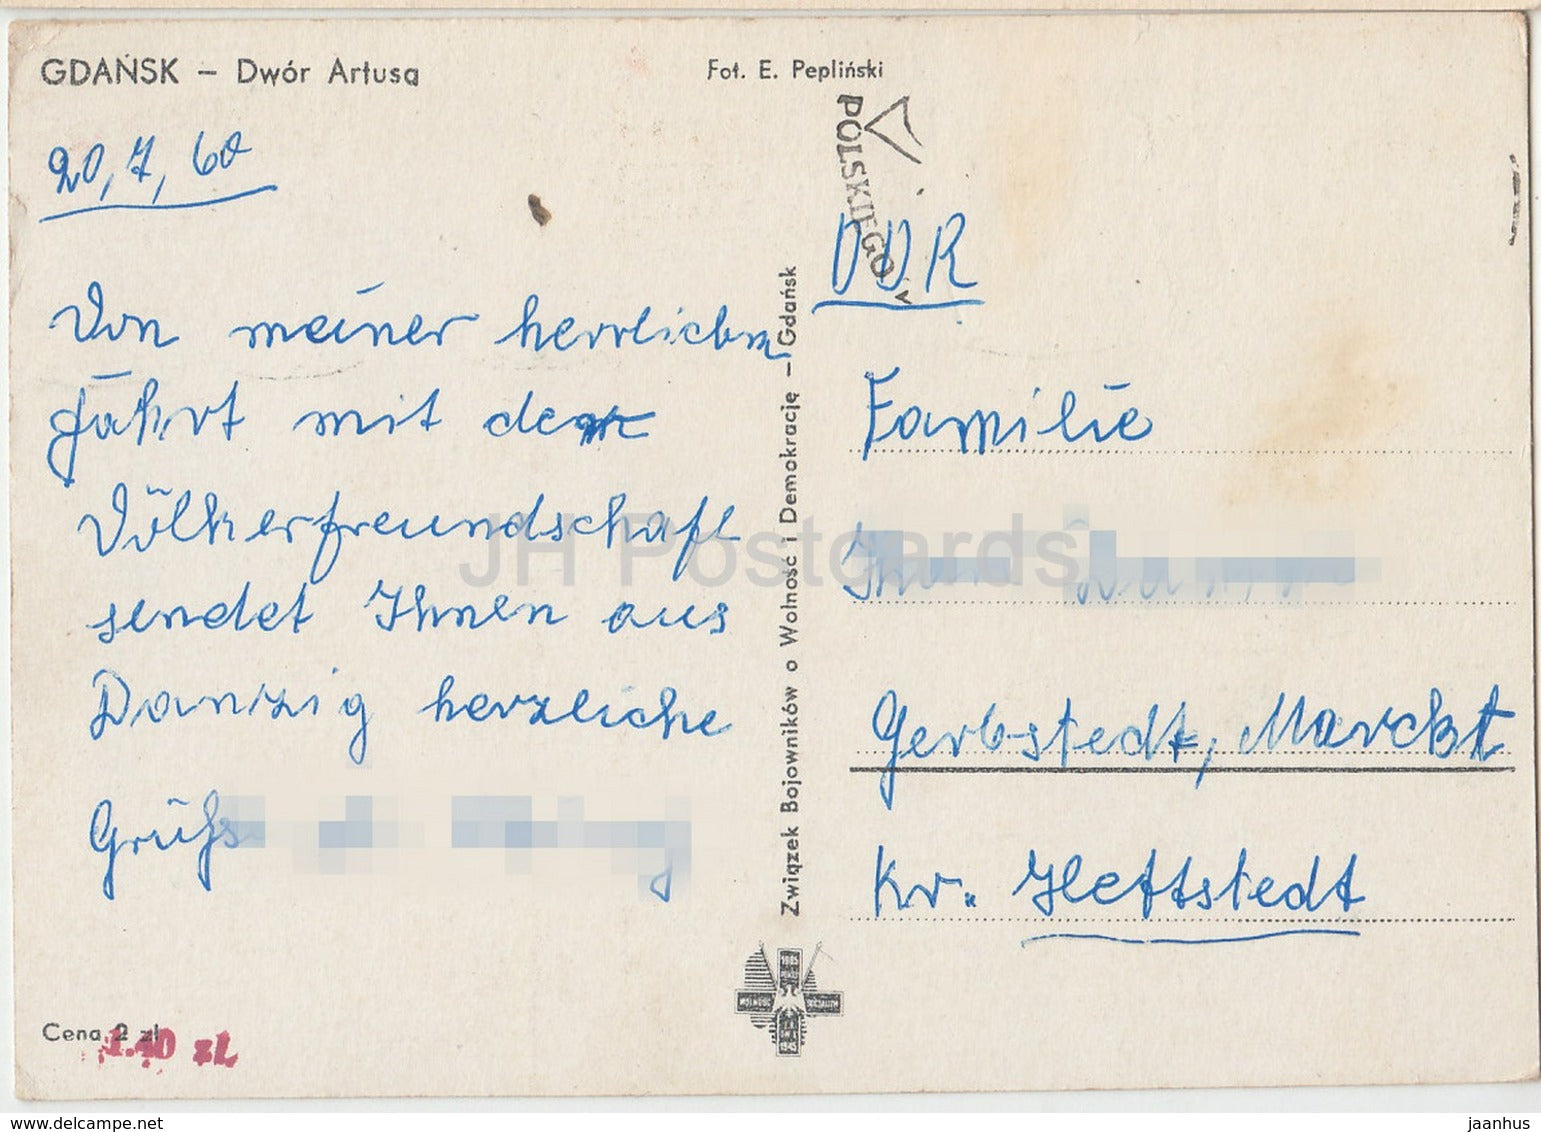 GDAŃSK – Dwór Artusa
Fot. E. Pepliński
20,7,60
Von meiner herrlichen
Fahrt mit der
Völkerfreundschaft
sendet Ihnen aus
Danzig herzliche
Grüße
Cena 2 zł
1.40 zł
Związek Bojowników o Wolność i Demokrację – Gdańsk
POLSKIEGO
DDR
Familie
Gerbstedt, Marckt
Kr. Hettstedt
JH Postcards
www.delcampe.net
jaanhus